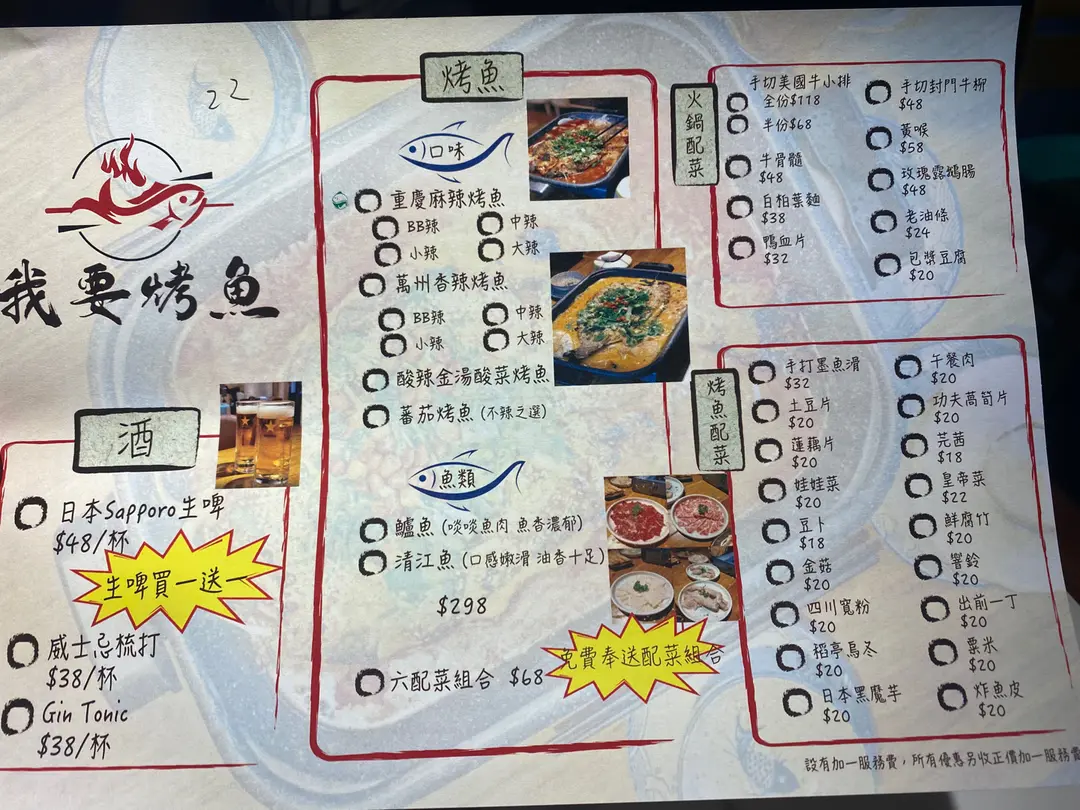 22
我要烤魚
酒
日本Sapporo生啤
$48/杯
生啤買一送一
威士忌梳打
$38/杯
Gin Tonic
$38/杯
烤魚
口味
重慶麻辣烤魚
BB辣 中辣
小辣 大辣
萬州香辣烤魚
BB辣 中辣
小辣 大辣
酸辣金湯酸菜烤魚
蕃茄烤魚 (不辣之選)
魚類
鱸魚 (啖啖魚肉 魚香濃郁)
清江魚 (口感嫩滑 油香十足)
$298
免費奉送配菜組合
六配菜組合 $68
火鍋配菜
手切美國牛小排
全份$118
半份$68
牛骨髓
$48
白柏葉麵
$38
鴨血片
$32
手切封門牛柳
$48
黃喉
$58
玫瑰露鵝腸
$48
老油條
$24
包漿豆腐
$20
烤魚配菜
手打墨魚滑
$32
土豆片
$20
蓮藕片
$20
娃娃菜
$20
豆卜
$18
金菇
$20
四川寬粉
$20
稻亭烏冬
$20
日本黑魔芋
$20
午餐肉
$20
功夫萵筍片
$20
芫茜
$18
皇帝菜
$22
鮮腐竹
$20
響鈴
$20
出前一丁
$20
粟米
$20
炸魚皮
$20
設有加一服務費，所有優惠另收正價加一服務費